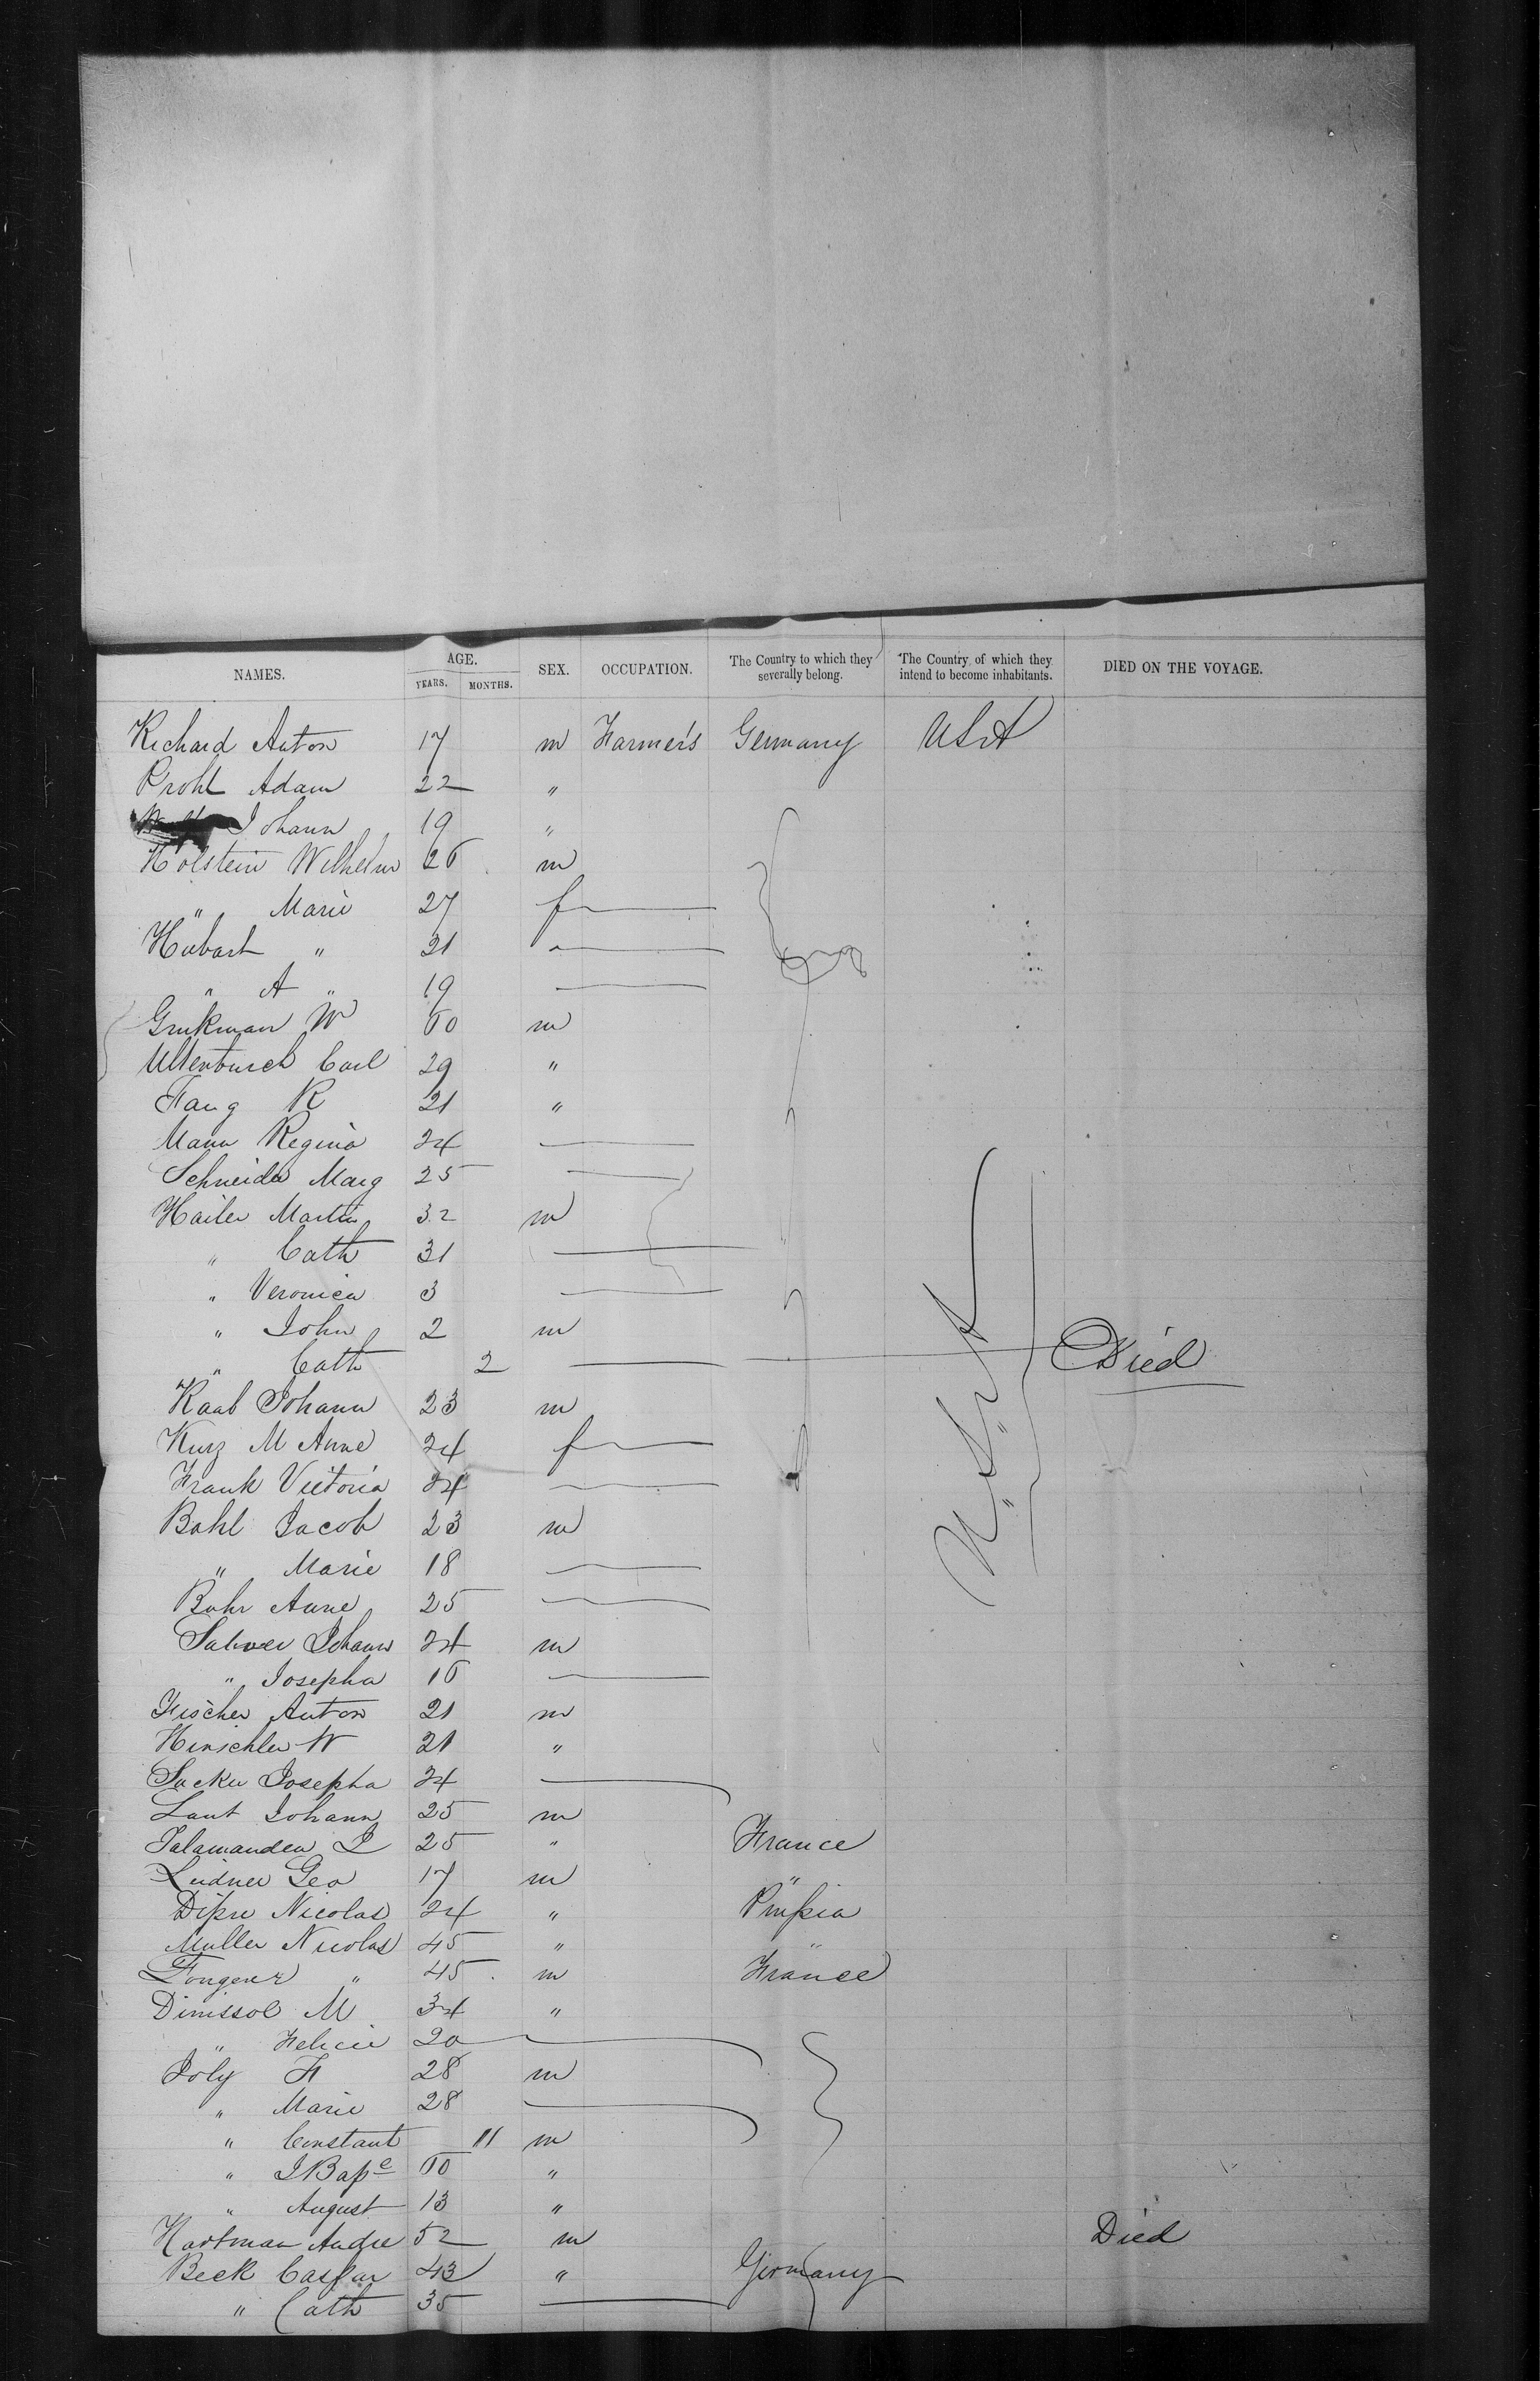 NAMES. AGE. YEARS. MONTHS. SEX. OCCUPATION. The Country to which they severally belong. The Country of which they intend to become inhabitants. DIED ON THE VOYAGE.
Richard Anton 17 m Farmers Germany USA
Prohl Adam 22 "
Johann 19 "
Holstein Wilhelm 26 m
" Marie 27 f
Hubart " 21
" A " 19
Grukman W 60 m
Ullenbusch Carl 29 "
Fang R 21 "
Mann Regina 24
Schneider Marg 25
Hailer Martin 32 m
" Cath 31
" Veronica 3
" John 2 m
" Cath 2 Died
Raab Johann 23 m
Kurz M Anne 24 f
Frank Victoria 24
U.S.A
Bohl Jacob 23 m
" Marie 18
Bohr Anne 25
Johann 24 m
" Josepha 16
Fischer Anton 21 m
Hirschler W 21 "
Sacker Josepha 24
Laut Johann 25 m
Salamander J 25 " France
Leidner Geo 17 m "
Nicolas 24 " Prußia
Muller Nicolas 45 " "
" 45 m France
Dinissol M 34 "
" Felicie 20
Joly F 28 m
" Marie 28
" Constant 11 m
" J Bape 60 "
" August 13 "
Hartman Andre 52 m Died
Beck Caspar 43 " Germany
" Cath 35